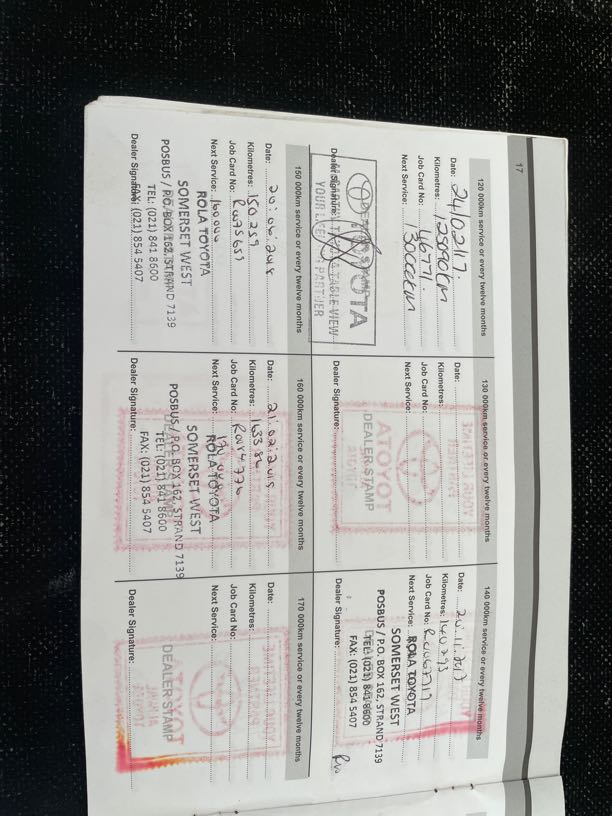 17
120 000km service or every twelve months
Date: 24/02/17.
Kilometres: 125090km
Job Card No: 46771.
Next Service:
Dealer Signature:
DEALER STAMP
YOUR LIFETIME PARTNER
130 000km service or every twelve months
Date:
Kilometres:
Job Card No:
Next Service:
DEALER STAMP
Dealer Signature:
140 000km service or every twelve months
Date: 20.11.2017
Kilometres: 140293
Job Card No:
Next Service:
ROLA TOYOTA
SOMERSET WEST
POSBUS / P.O. BOX 162, STRAND 7139
TEL: (021) 841 8600
FAX: (021) 854 5407
Dealer Signature:
150 000km service or every twelve months
Date: 20.06.2018
Kilometres: 150 259
Job Card No:
Next Service: 160 000
ROLA TOYOTA
SOMERSET WEST
POSBUS / P.O. BOX 162, STRAND 7139
TEL: (021) 841 8600
FAX: (021) 854 5407
Dealer Signature:
160 000km service or every twelve months
Date:
Kilometres:
Job Card No:
Next Service:
ROLA TOYOTA
SOMERSET WEST
POSBUS / P.O. BOX 162, STRAND 7139
TEL: (021) 841 8600
FAX: (021) 854 5407
DEALER STAMP
Dealer Signature:
170 000km service or every twelve months
Date:
Kilometres:
Job Card No:
Next Service:
DEALER STAMP
Dealer Signature: